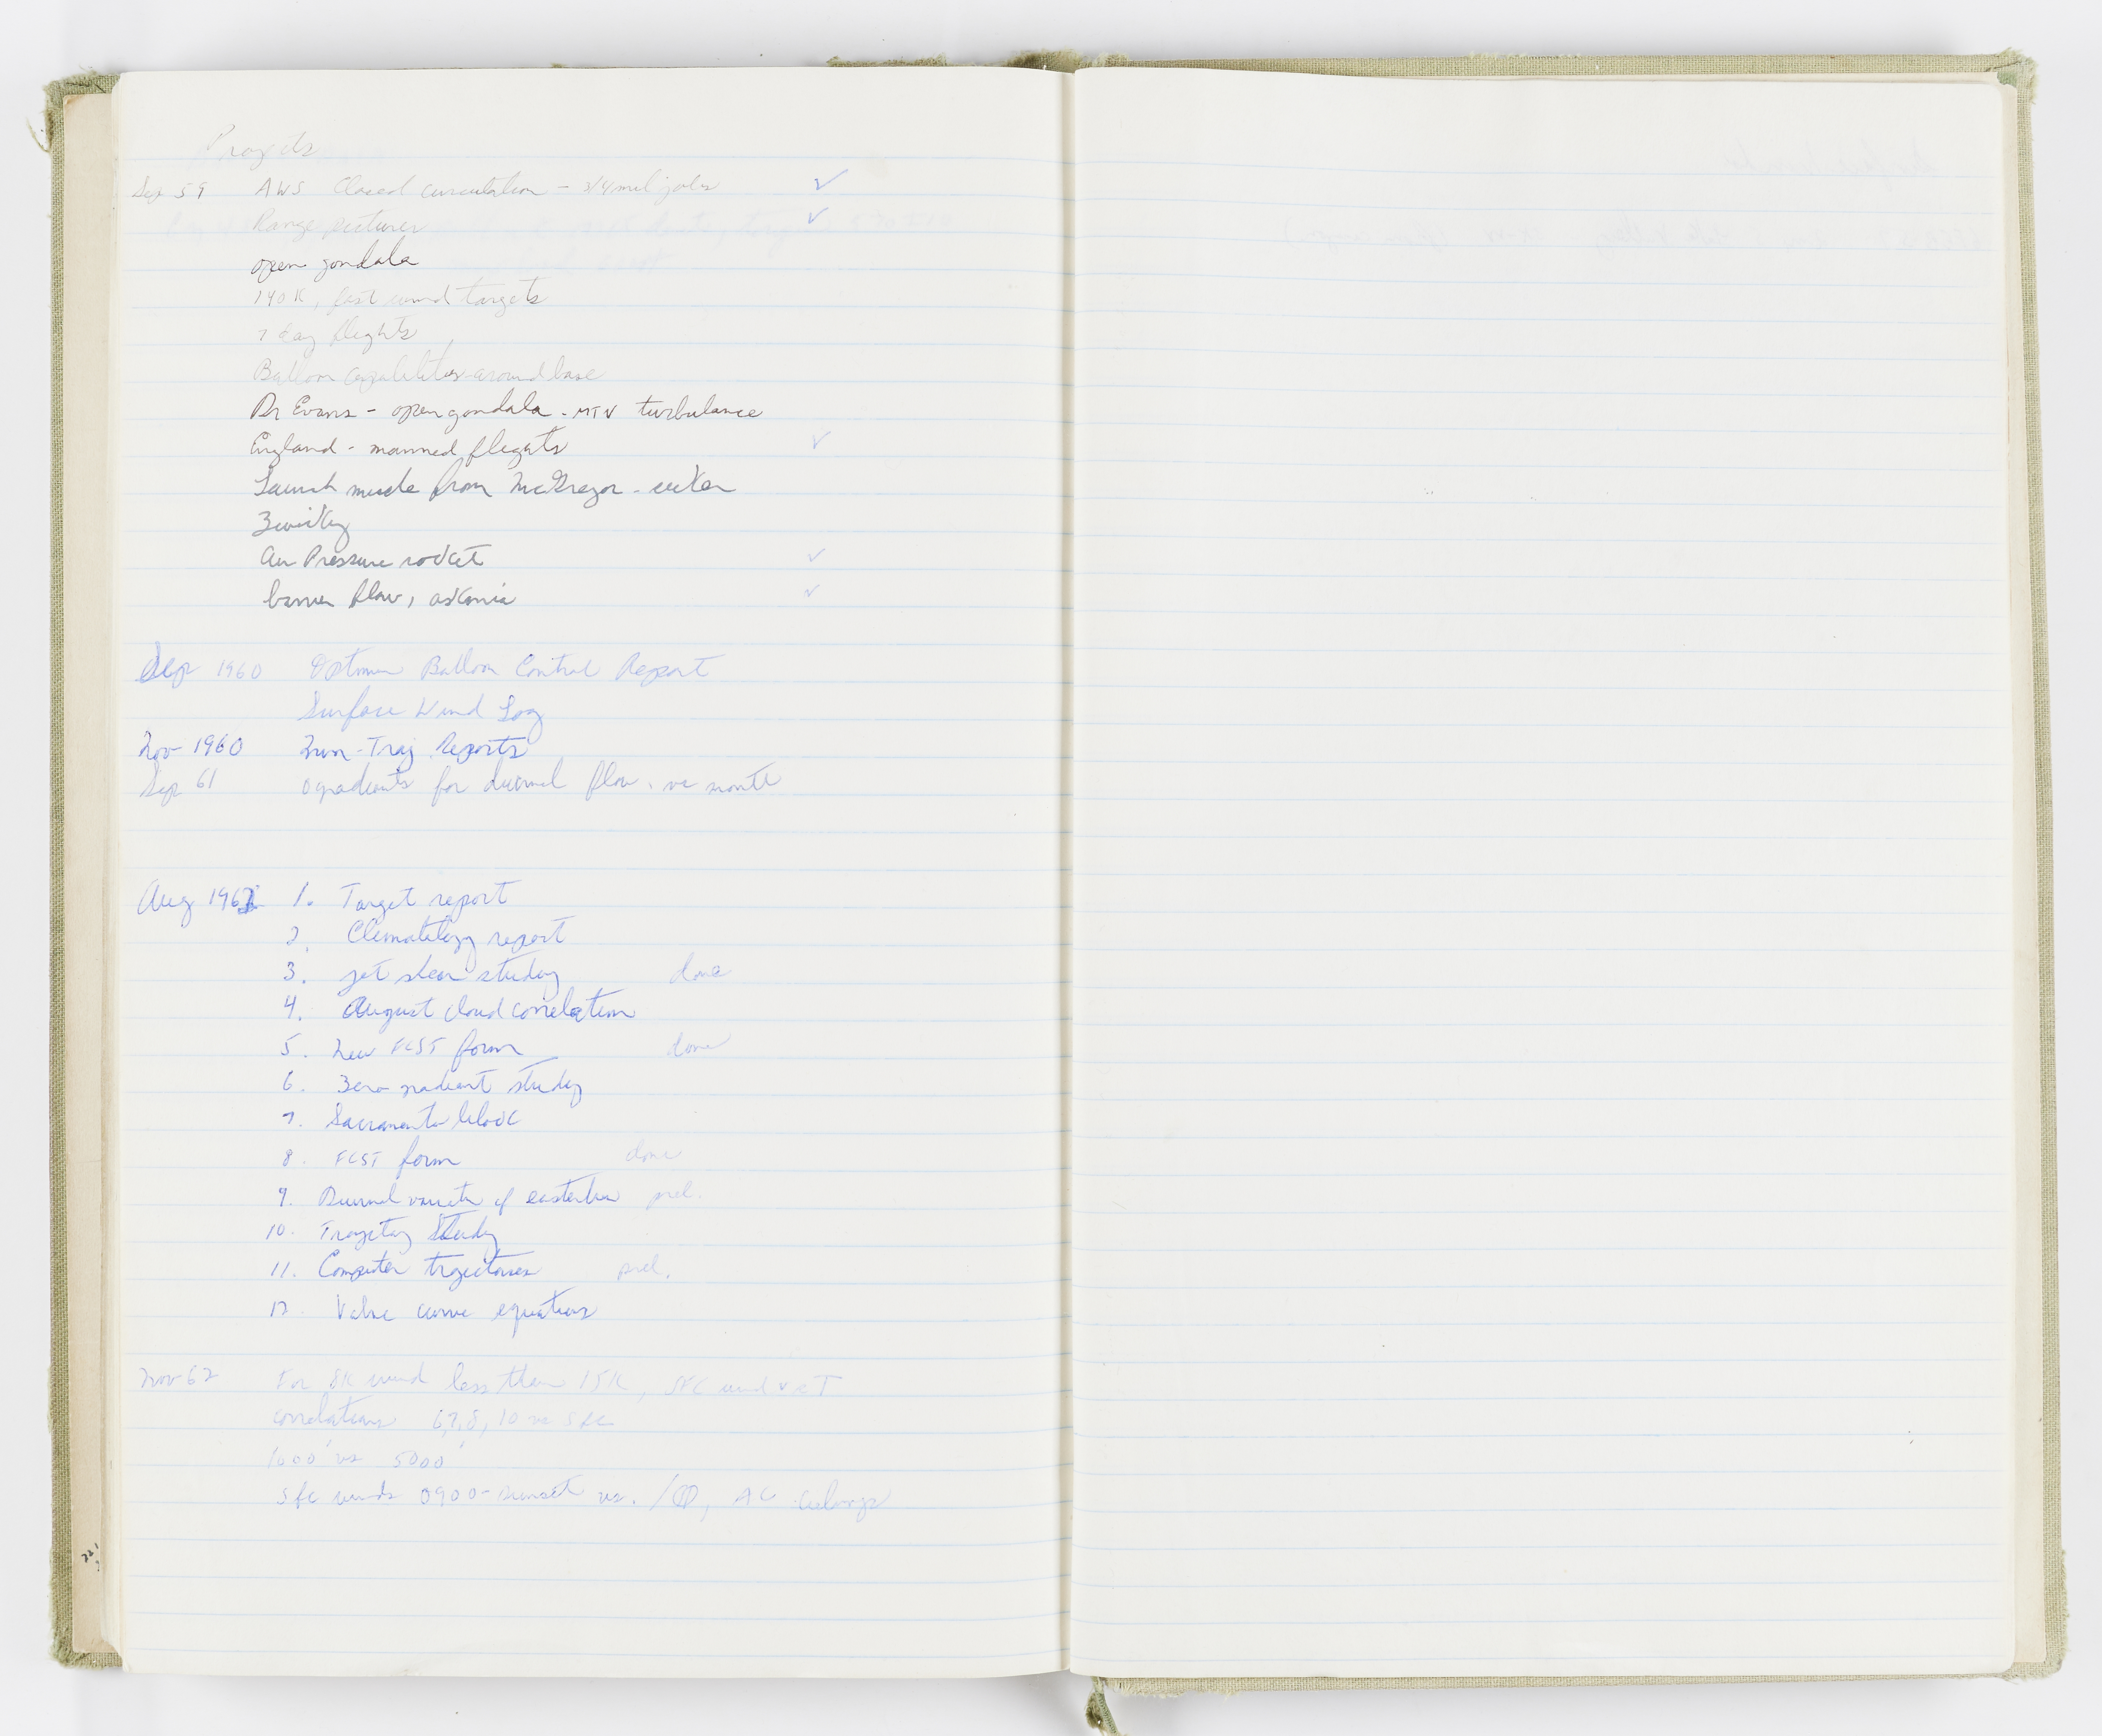 Projects
Sep 59 AWS Closed circulation - 3/4 mil jobs ✓
Range pictures ✓
open gondala
140K, fast wind targets
7 day flights
Balloon capabilities around base
Dr Evans - open gondala - MTN turbulance
England - manned flights ✓
Launch missle from McGregor -
Zwicky
Air Pressure rocket ✓
barrier flow, askania ✓
Sep 1960 Optimum Balloon Control Report
Surface Wind Log
Nov 1960 Traj. Reports
Sep 61 0 gradients for diurnal flow. vs month
Aug 1962 1. Target report
2. Climatology report
3. jet stear study done
4. August cloud correlation
5. New FCST form done
6. Zero gradient study
7. Sacramento block
8. FCST form done
9. Diurnal variation of easterlies prel.
10. Trajectory Study
11. Computer trajectories prel.
12. Valve curve equations
Nov 62 For 8K wind less than 15K, SFC wind vs T
correlations 6,7,8,10 vs sfc
1000' vs 5000'
Sfc winds 0900-sunset vs. /⦶, AC
221